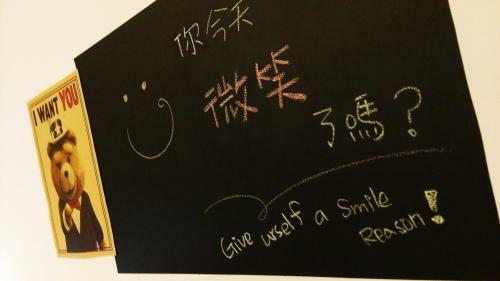 I WANT YOU
你今天
微笑
了嗎？
Give urself a Smile
Reason!